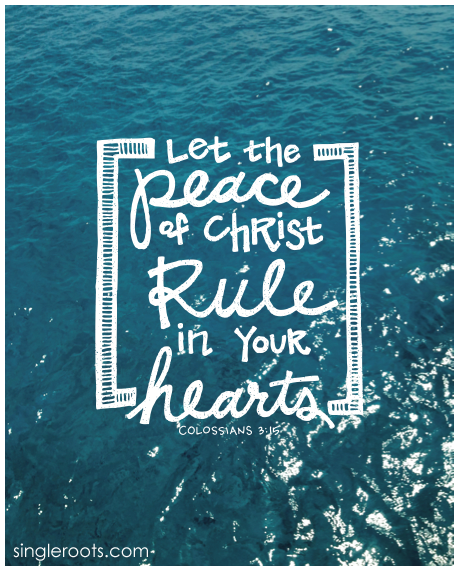 Let the
peace
of Christ
Rule
in Your
hearts
COLOSSIANS 3:15
singleroots.com